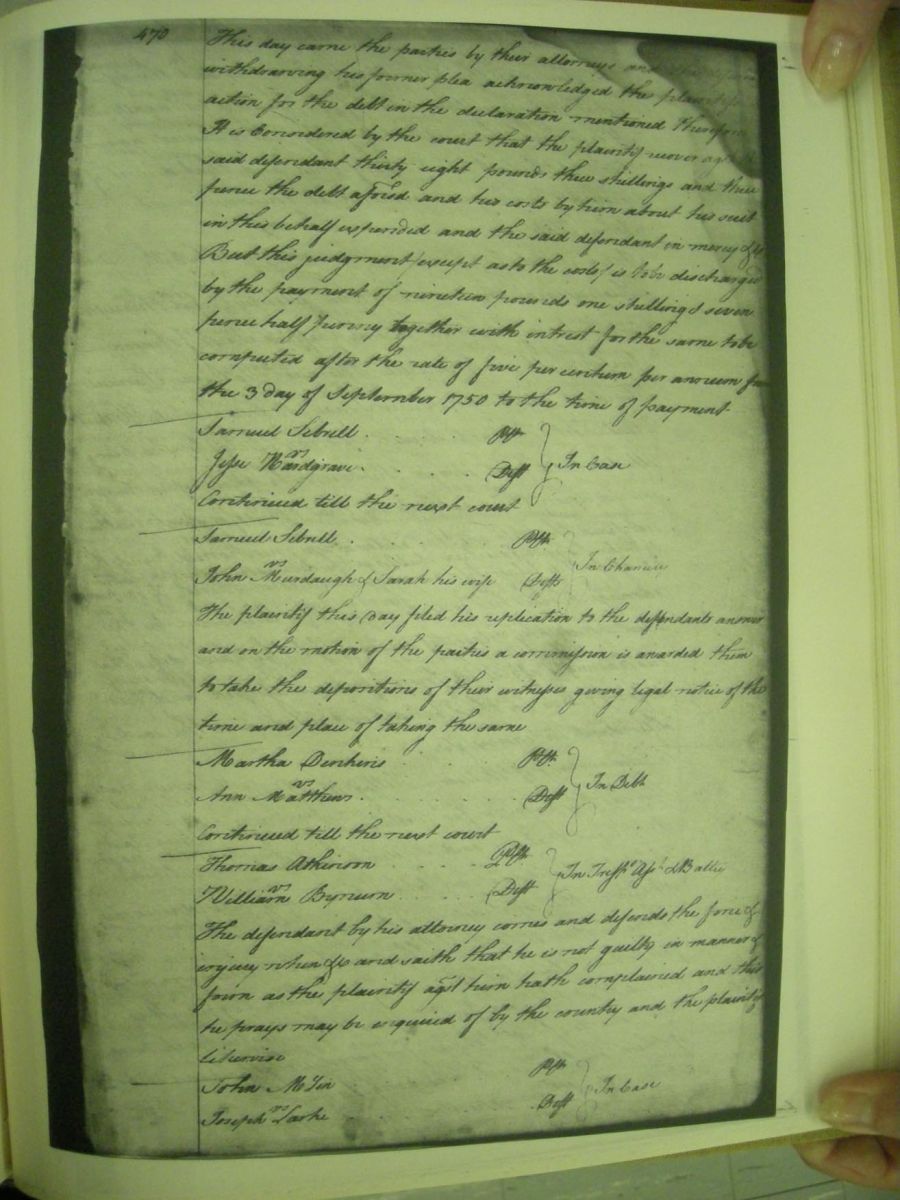 470
This day came the parties by their attorneys and the
withdrawing his former plea acknowledged the plaintifs
action for the debt in the declaration mentioned Therefore
It is Considered by the court that the plaintif recover agst
said defendant thirty eight pounds three shillings and three
pence the debt afores'd and his costs by him about his suit
in this behalf expended and the said defendant in mercy &c
But this judgment (except as to the costs) is to be discharged
by the payment of nineteen pounds one shillings seven
pence half penny together with intrest for the same to be
computed after the rate of five per centum per annum from
the 3 day of September 1750 to the time of payment
Samuel Sebrell . . . . Pltf.
vs } In Case
Jesse Hardgrave . . . . Deft
Continued till the next court
Samuel Sebrell . . . . Pltf.
vs } In Chancie
John Murdaugh & Sarah his wife Defts
The plaintif this day filed his replication to the defendants answer
and on the motion of the parties a commission is awarded them
to take the depositions of their witnesses giving legal notice of the
time and place of taking the same
Martha . . . Pltf.
vs } In Debt
Ann Matthews . . . . . . Deft
Continued till the next court
Thomas Atkinson . . . . Pltf.
vs } In Tressps Asst & Battie
William Bynum . . . . Deft
The defendant by his attorney comes and defends the force &
injury when &c and saith that he is not guilty in manner &
form as the plaintif agst him hath complained and this
he prays may be enquired of by the country and the plaintif
likewise
John Pltf.
vs } In Case
Joseph Deft